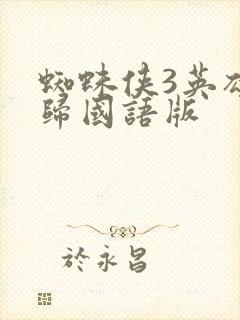 蜘蛛俠3英
歸國語版
於永昌